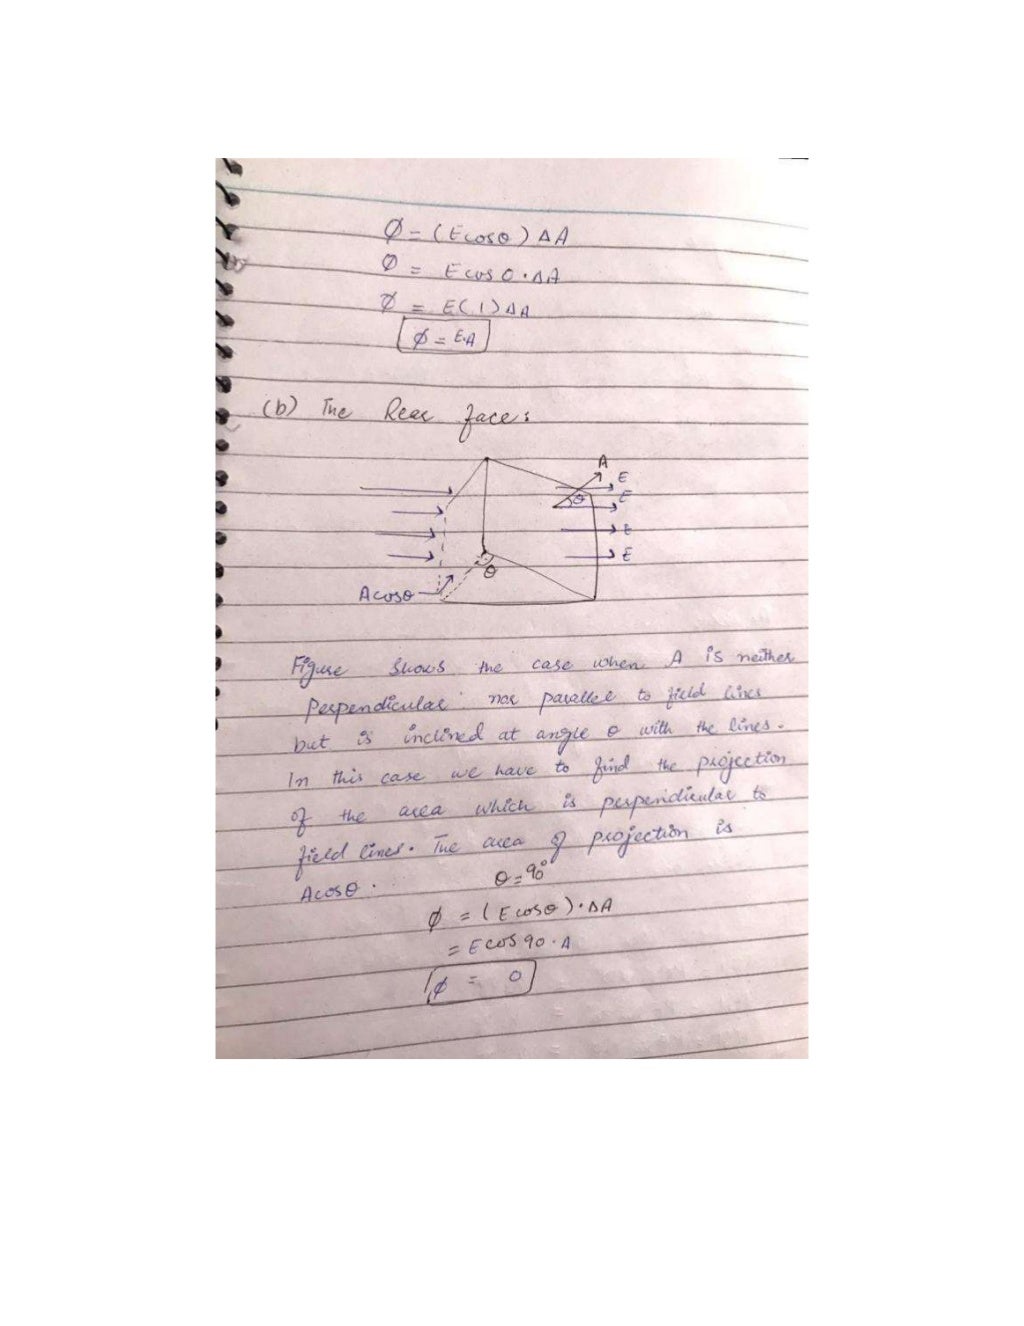 φ = (E cosθ) ΔA
φ = E cos 0 · ΔA
φ = E(1) ΔA
φ = E·A
(b) The Rear face:
A
E
θ
E
E
E
θ
A cosθ
Figure shows the case when A is neither
perpendicular nor parallel to field lines
but is inclined at angle θ with the lines.
In this case we have to find the projection
of the area which is perpendicular to
field lines. The area of projection is
A cosθ.
θ = 90°
φ = (E cosθ) · ΔA
= E cos 90 · A
φ = 0